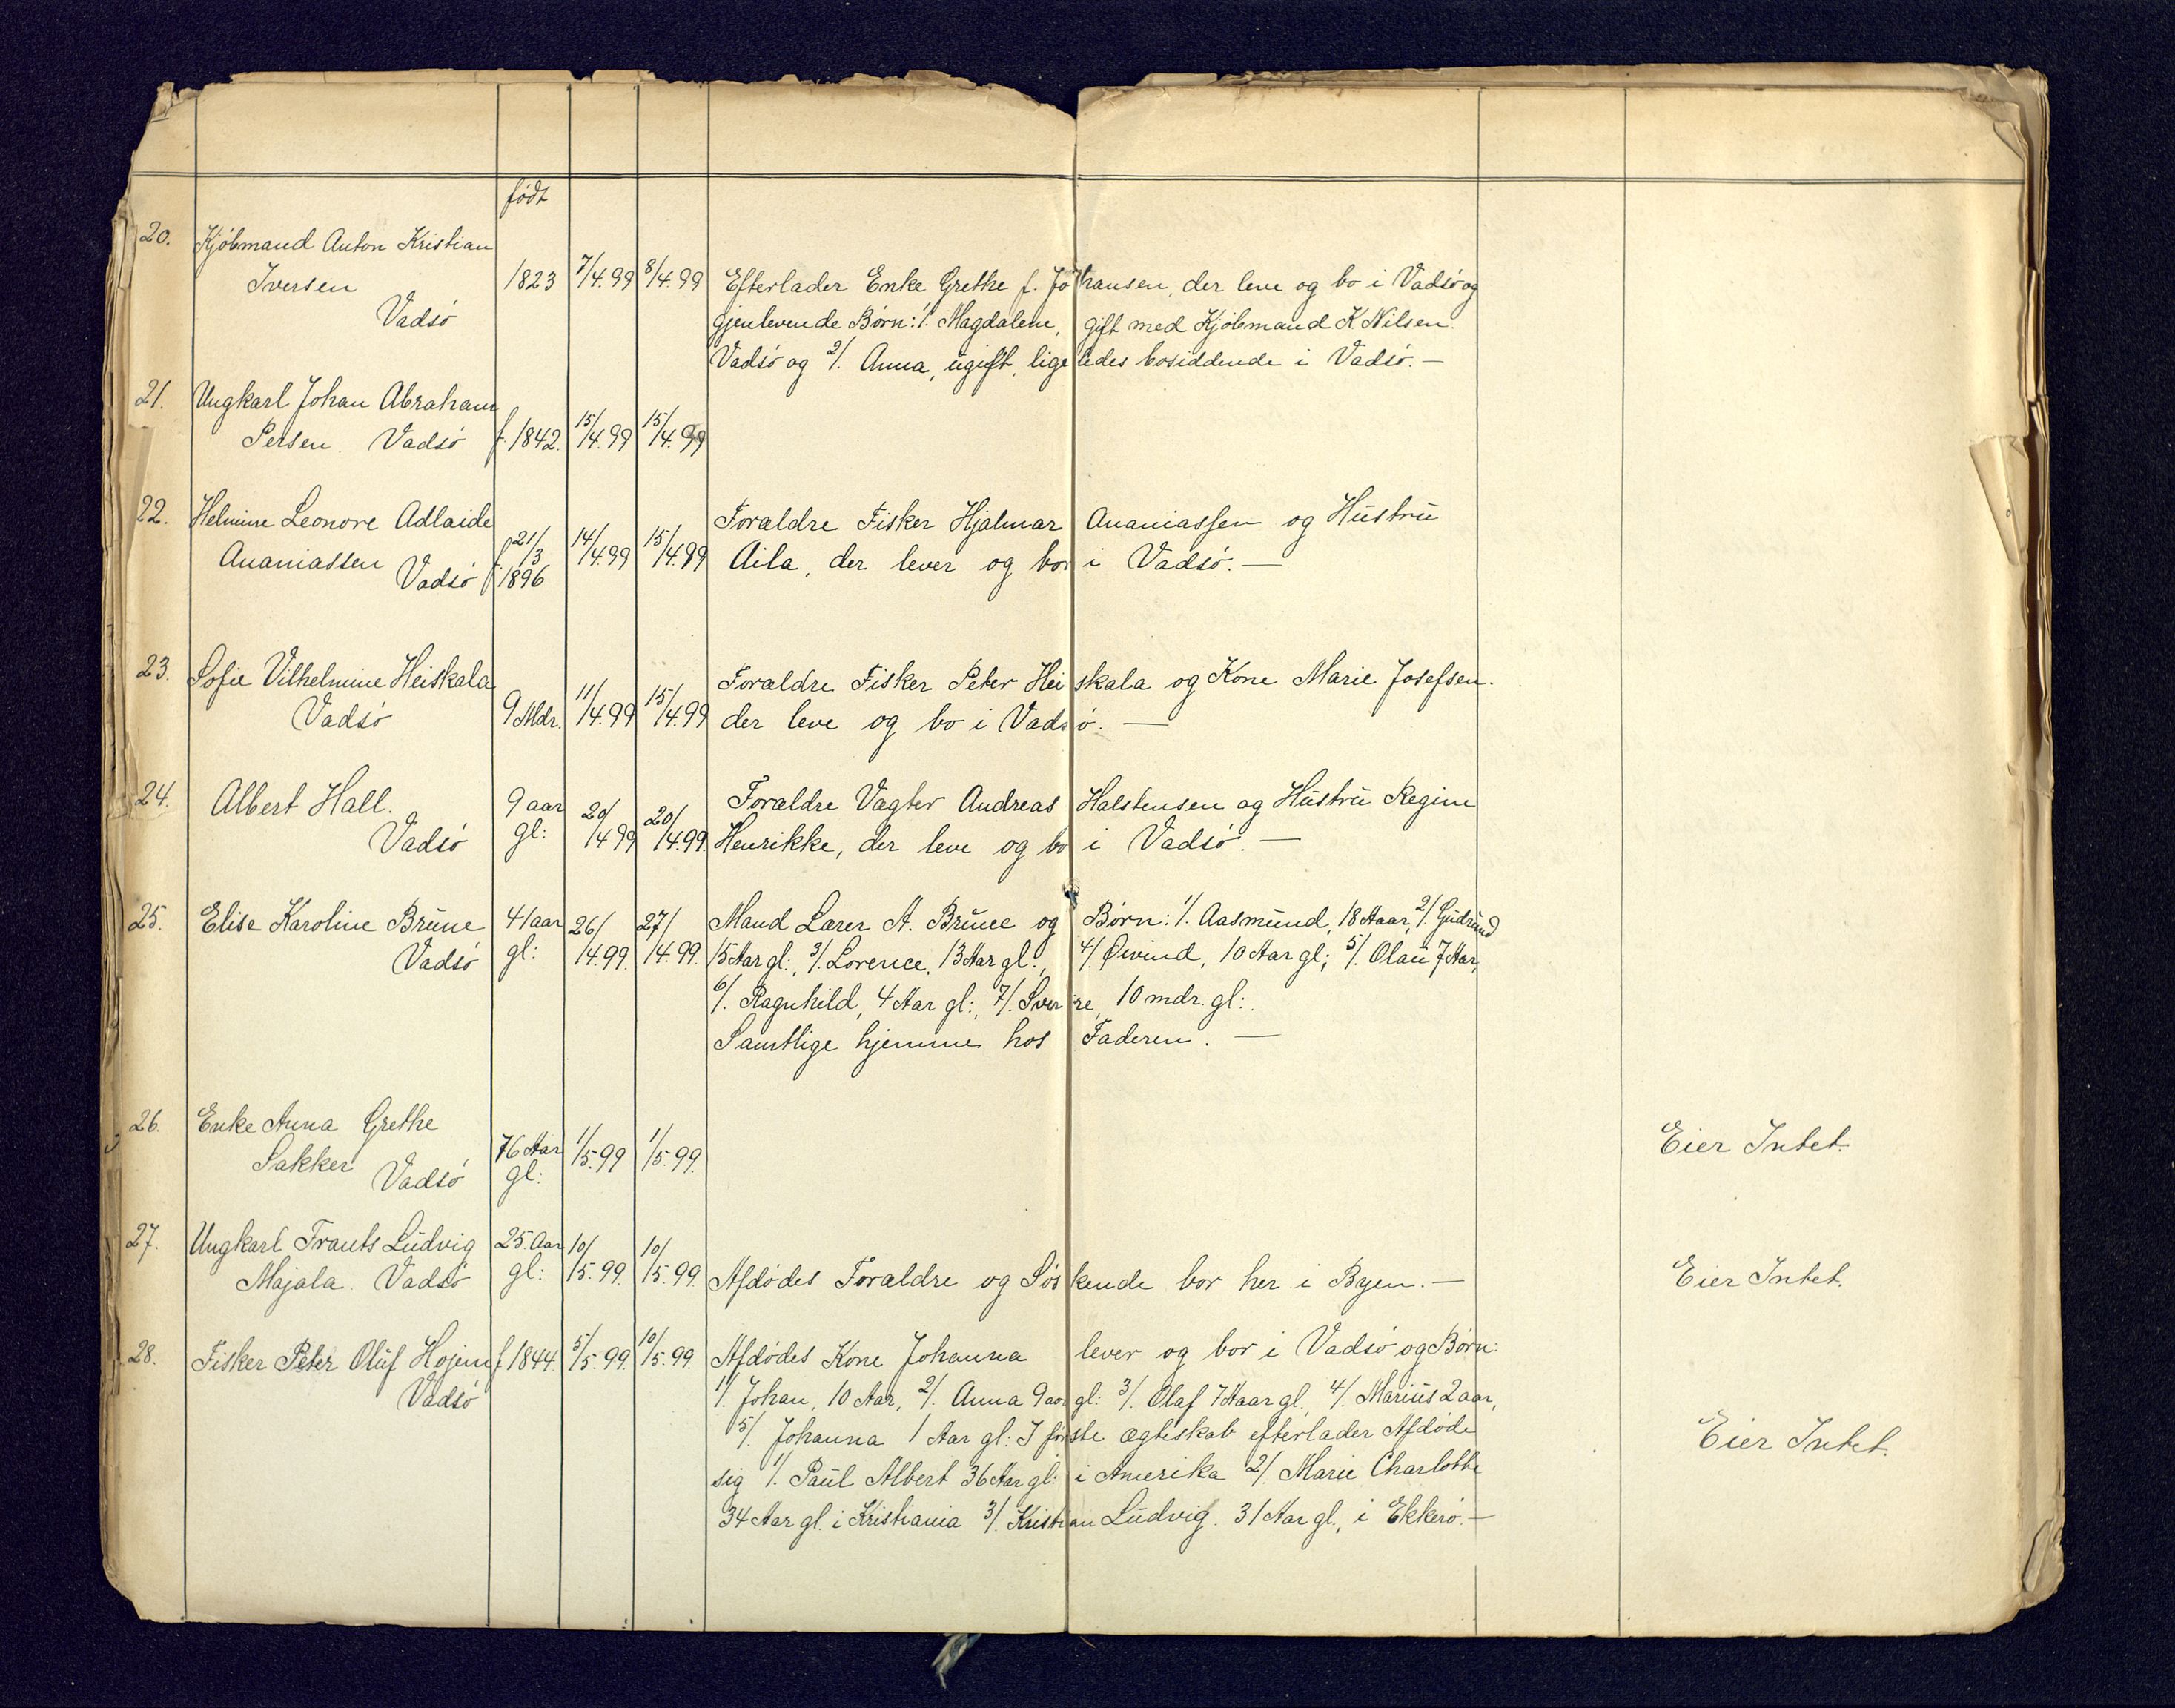 født
20. Kjøbmand Anton Kristian
Iversen 1823 7/4.99 8/4.99 Efterlader Enke Grethe f. Johansen, der leve og bo i Vadsø og
Vadsø gjenlevende Børn: 1/. Magdalene, gift med Kjøbmand K Nilsen.
Vadsø og 2/. Anna, ugift, ligeledes bosiddende i Vadsø. —
21. Ungkarl Johan Abraham
Persen. Vadsø f. 1842. 15/4.99 15/4.99
22. Helmine Leonore Adlaide Forældre Fisker Hjalmar Ananiassen og Hustru
Ananiassen f 21/3 14/4.99 15/4.99 Aila, der lever og bor i Vadsø. —
Vadsø 1896
23. Sofie Vilhelmine Heiskala Forældre Fisker Peter Heiskala og Kone Marie Josefsen.
Vadsø 9 Mdr. 11/4.99 15/4.99 der leve og bo i Vadsø. —
24. Albert Hall. 9 aar 20/4 99 20/4.99. Forældre Vagter Andreas Halstensen og Hustru Regine
Vadsø gl: Henrikke, der leve og bo i Vadsø. —
25. Elise Karoline Brune 41 aar 26/4.99. 27/4.99. Mand Lærer A. Brune og Børn: 1/. Aasmund, 18 Aar, 2/. Gudrund
Vadsø gl: 15 Aar gl:, 3/. Lorence, 13 Aar gl:, 4/. Øivind, 10 Aar gl; 5/. Olau 7 Aar,
6/. Ragnhild, 4 Aar gl:, 7/. Sverre, 10 mdr. gl:.
Samtlige hjemme hos Faderen. —
26. Enke Anna Grethe
Sakker 76 Aar 1/5.99 1/5.99. Eier Intet.
Vadsø gl:
27. Ungkarl Frants Ludvig 25 Aar 10/5.99. 10/5.99.
Majala. Vadsø gl: Afdødes Forældre og Søskende bor her i Byen. — Eier Intet.
28. Fisker Peter Oluf Hojem f 1844. 5/5.99. 10/5.99. Afdødes Kone Johanna lever og bor i Vadsø og Børn:
Vadsø 1/. Johan, 10 Aar, 2/. Anna 9 aar gl: 3/. Olaf 7 Aar gl., 4/. Marius 2 aar,
5/. Johanna 1 Aar gl: I første ægteskab efterlader Afdøde Eier Intet.
sig 1/. Paul Albert 36 Aar gl: i Amerika 2/. Marie Charlotte
34 Aar gl. i Kristiania 3/. Kristian Ludvig. 31 Aar gl., i Ekkerø. —